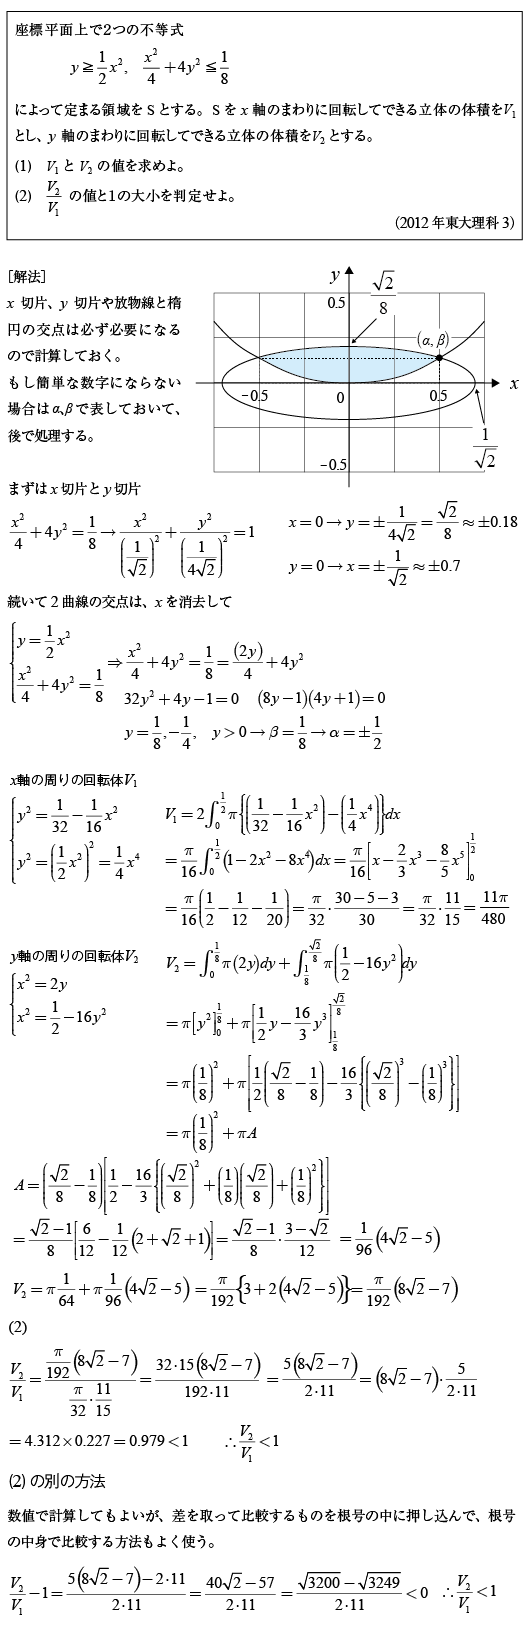 座標平面上で2つの不等式
y≧1/2 x², x²/4+4y²≦1/8
によって定まる領域をSとする。Sをx軸のまわりに回転してできる立体の体積をV₁
とし、y軸のまわりに回転してできる立体の体積をV₂とする。
(1) V₁とV₂の値を求めよ。
(2) V₂/V₁ の値と1の大小を判定せよ。
(2012年東大理科3)
[解法]
x切片、y切片や放物線と楕
円の交点は必ず必要になる
ので計算しておく。
もし簡単な数字にならない
場合はα,βで表しておいて、
後で処理する。
y
√2/8
0.5
(α, β)
−0.5
0
0.5
x
−0.5
1/√2
まずはx切片とy切片
x²/4+4y²=1/8→x²/(1/√2)²+y²/(1/(4√2))²=1
x=0→y=±1/(4√2)=√2/8≈±0.18
y=0→x=±1/√2≈±0.7
続いて2曲線の交点は、xを消去して
{y=1/2 x²
x²/4+4y²=1/8
⇒x²/4+4y²=1/8=(2y)/4+4y²
32y²+4y−1=0 (8y−1)(4y+1)=0
y=1/8,−1/4, y>0→β=1/8→α=±1/2
x軸の周りの回転体V₁
{y²=1/32−1/16 x²
y²=(1/2 x²)²=1/4 x⁴
V₁=2∫₀^(1/2) π{(1/32−1/16 x²)−(1/4 x⁴)}dx
=π/16 ∫₀^(1/2) (1−2x²−8x⁴)dx=π/16 [x−2/3 x³−8/5 x⁵]₀^(1/2)
=π/16 (1/2−1/12−1/20)=π/32·(30−5−3)/30=π/32·11/15=11π/480
y軸の周りの回転体V₂
{x²=2y
x²=1/2−16y²
V₂=∫₀^(1/8) π(2y)dy+∫_(1/8)^(√2/8) π(1/2−16y²)dy
=π[y²]₀^(1/8)+π[1/2 y−16/3 y³]_(1/8)^(√2/8)
=π(1/8)²+π[1/2(√2/8−1/8)−16/3{(√2/8)³−(1/8)³}]
=π(1/8)²+πA
A=(√2/8−1/8)[1/2−16/3{(√2/8)²+(1/8)(√2/8)+(1/8)²}]
=(√2−1)/8 [6/12−1/12(2+√2+1)]=(√2−1)/8·(3−√2)/12 =1/96(4√2−5)
V₂=π 1/64+π 1/96(4√2−5)=π/192{3+2(4√2−5)}=π/192(8√2−7)
(2)
V₂/V₁=(π/192(8√2−7))/(π/32·11/15)=32·15(8√2−7)/(192·11)=5(8√2−7)/(2·11)=(8√2−7)·5/(2·11)
=4.312×0.227=0.979<1 ∴V₂/V₁<1
(2)の別の方法
数値で計算してもよいが、差を取って比較するものを根号の中に押し込んで、根号
の中身で比較する方法もよく使う。
V₂/V₁−1=(5(8√2−7)−2·11)/(2·11)=(40√2−57)/(2·11)=(√3200−√3249)/(2·11)<0 ∴V₂/V₁<1